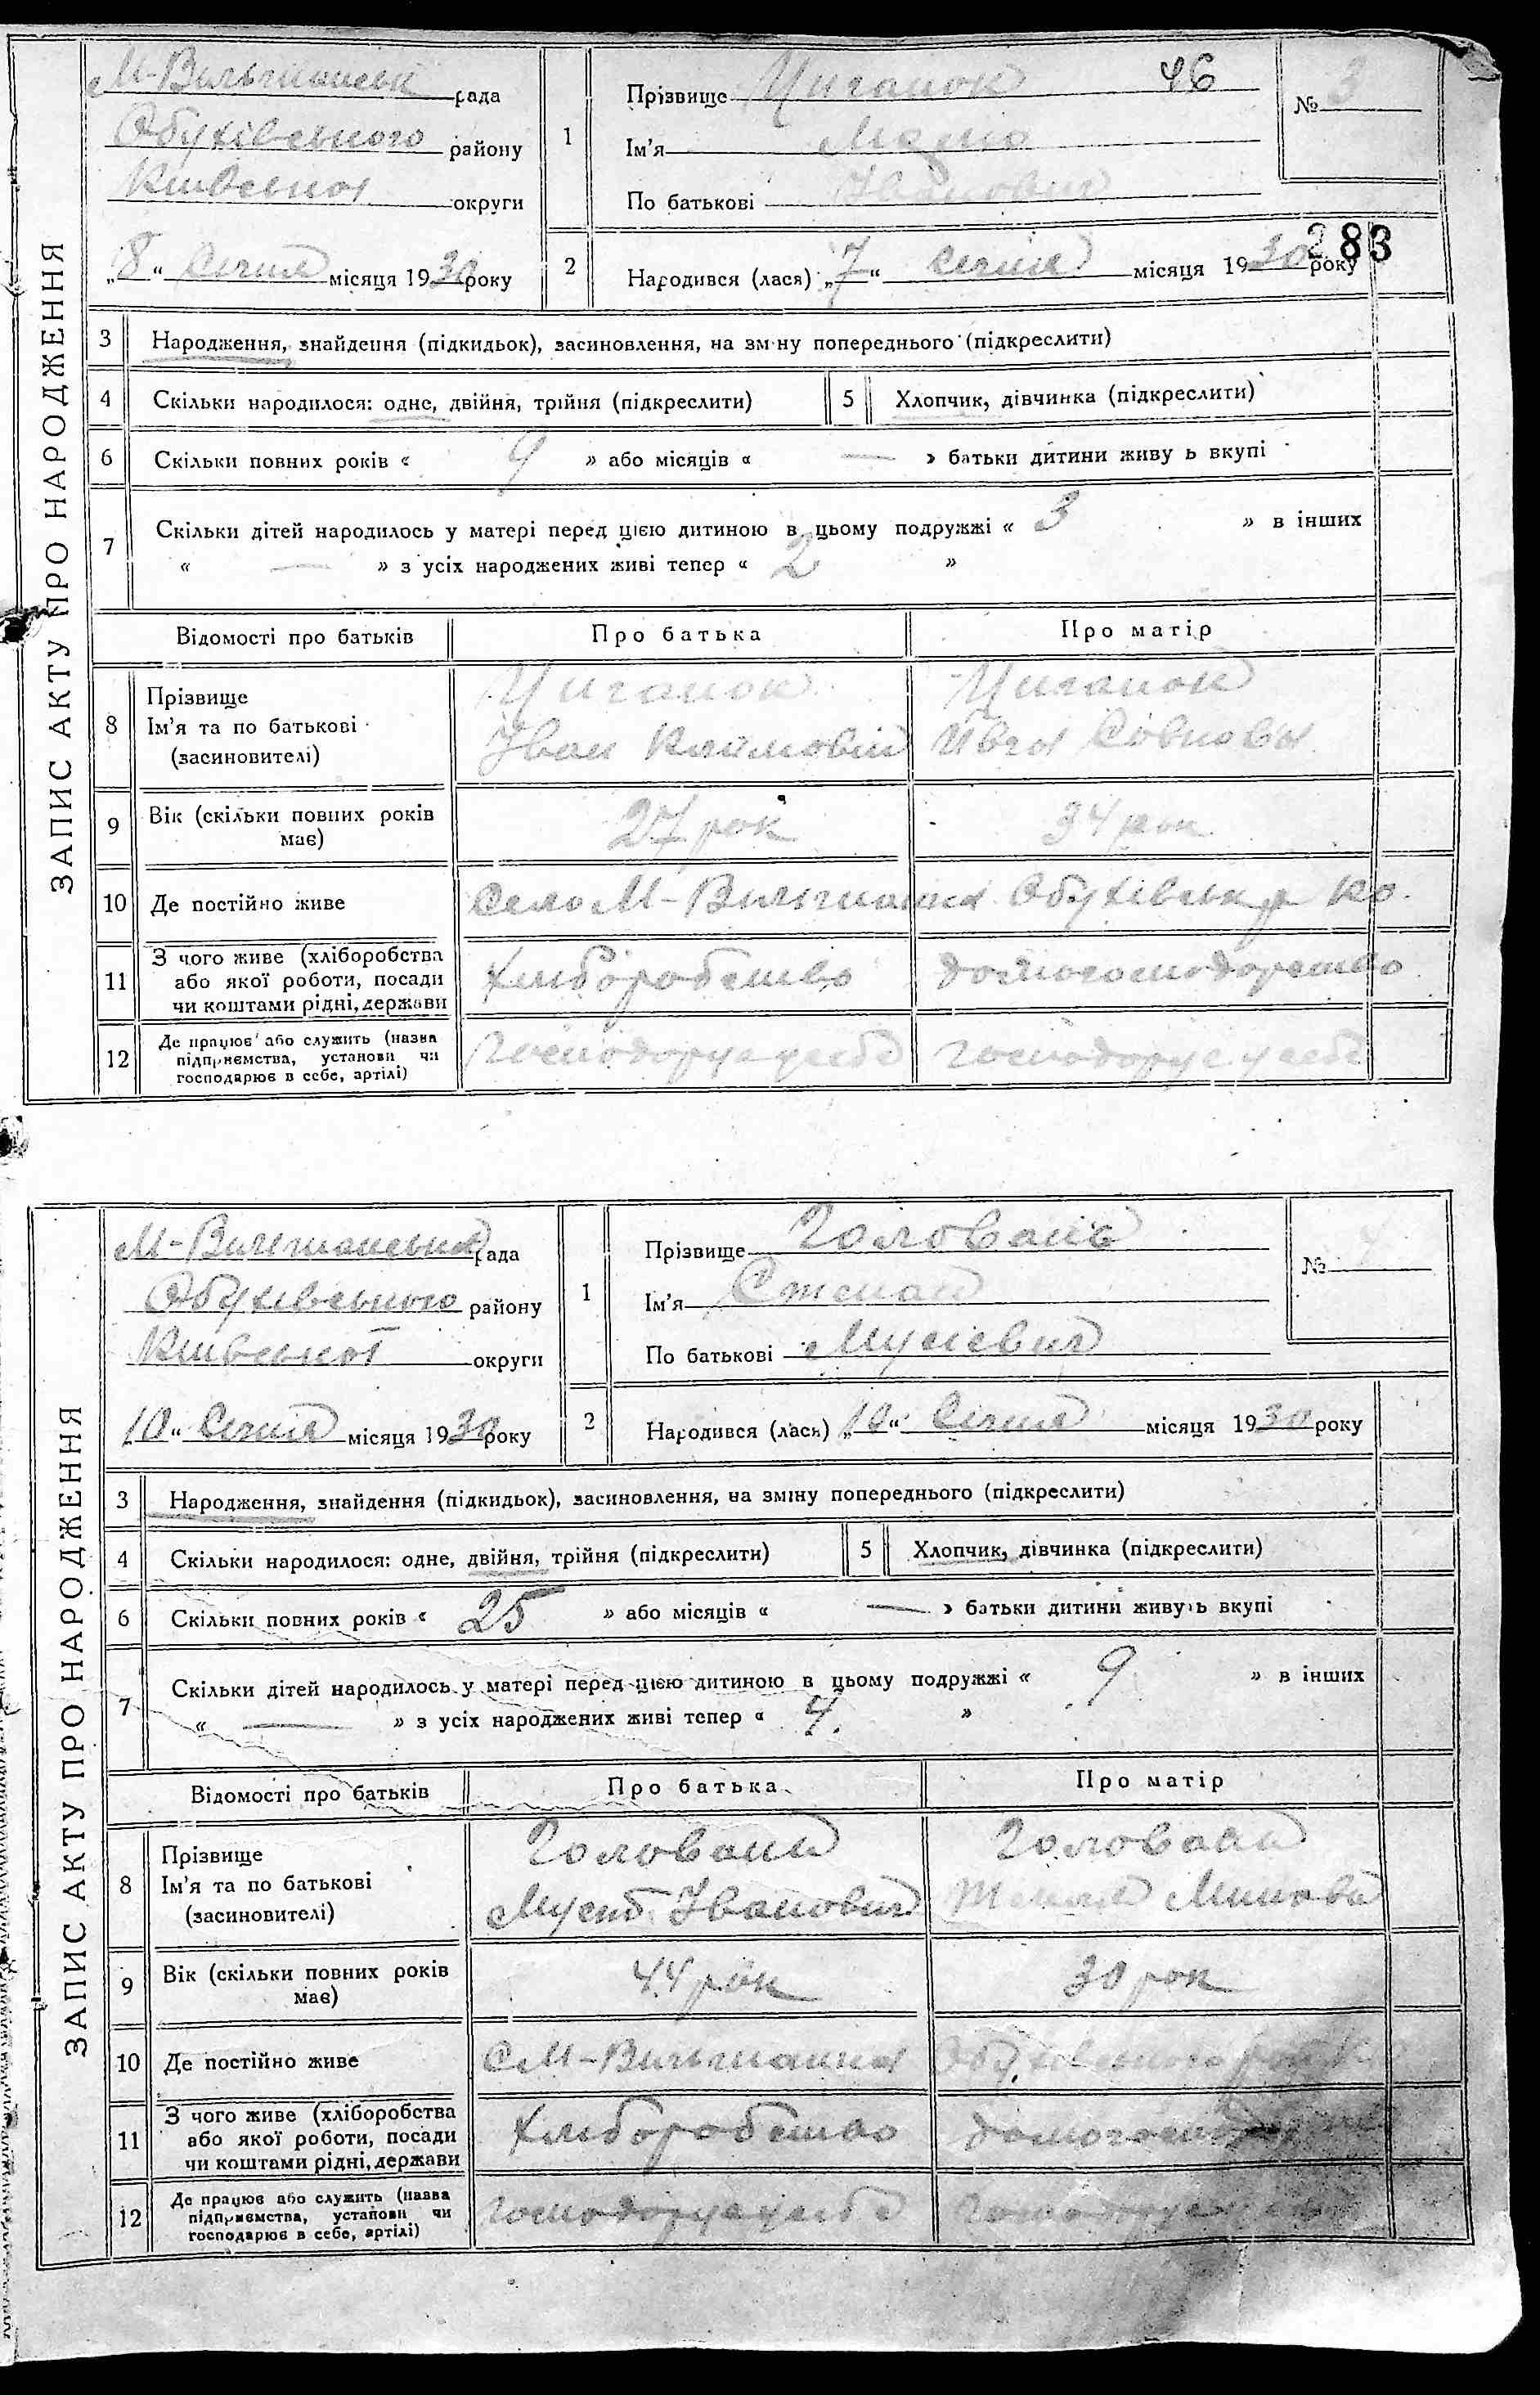 ЗАПИС АКТУ ПРО НАРОДЖЕННЯ
М-Вильшанськ рада
Обухівського району
Київської округи
„8“ Січня місяця 1930 року
1
Прізвище Циганок 46
Ім'я
По батькові Іванович
№ 3
283
2
Народився (лася) „7“ Січня місяця 1930 року
3 Народження, знайдення (підкидьок), засиновлення, на зміну попереднього (підкреслити)
4 Скільки народилося: одне, двійня, трійня (підкреслити) 5 Хлопчик, дівчинка (підкреслити)
6 Скільки повних років « 9 » або місяців « — » батьки дитини живу ь вкупі
7 Скільки дітей народилось у матері перед цією дитиною в цьому подружжі « 3 » в інших
« — » з усіх народжених живі тепер « 2 »
Відомості про батьків Про батька Про матір
8 Прізвище
Ім'я та по батькові
(засиновителі)
Циганок
Іван Климовій
Циганок
Ивга
9 Вік (скільки повних років
має)
27 рок
34 рок
10 Де постійно живе Село М-Вильшанка Обухівськ р Ко.
11 З чого живе (хліборобства
або якої роботи, посади
чи коштами рідні, держави
хлиборобство
домогосподорство
12 Де працює або служить (назва
підприємства, установи чи
господарює в себе, артілі)
Господорує усебе
господорує усебе
ЗАПИС АКТУ ПРО НАРОДЖЕННЯ
М-Вильшанська рада
Обухівського району
Київської округи
„10“ Січня місяця 1930 року
1
Прізвище Головань
Ім'я Степан
По батькові Мусієвич
№ 4
2
Народився (лася) „10“ Січня місяця 1930 року
3 Народження, знайдення (підкидьок), засиновлення, на зміну попереднього (підкреслити)
4 Скільки народилося: одне, двійня, трійня (підкреслити) 5 Хлопчик, дівчинка (підкреслити)
6 Скільки повних років « 25 » або місяців « — » батьки дитини живуть вкупі
7 Скільки дітей народилось у матері перед цією дитиною в цьому подружжі « 9 » в інших
« — » з усіх народжених живі тепер « 4. »
Відомості про батьків Про батька Про матір
8 Прізвище
Ім'я та по батькові
(засиновителі)
Головань
Мусій Іванович
Головань
9 Вік (скільки повних років
має)
44 рок
30 рок
10 Де постійно живе С М-Вильшанка Обухівського
11 З чого живе (хліборобства
або якої роботи, посади
чи коштами рідні, держави
хлиборобство
12 Де працює або служить (назва
підприємства, установи чи
господарює в себе, артілі)
господорує усебе